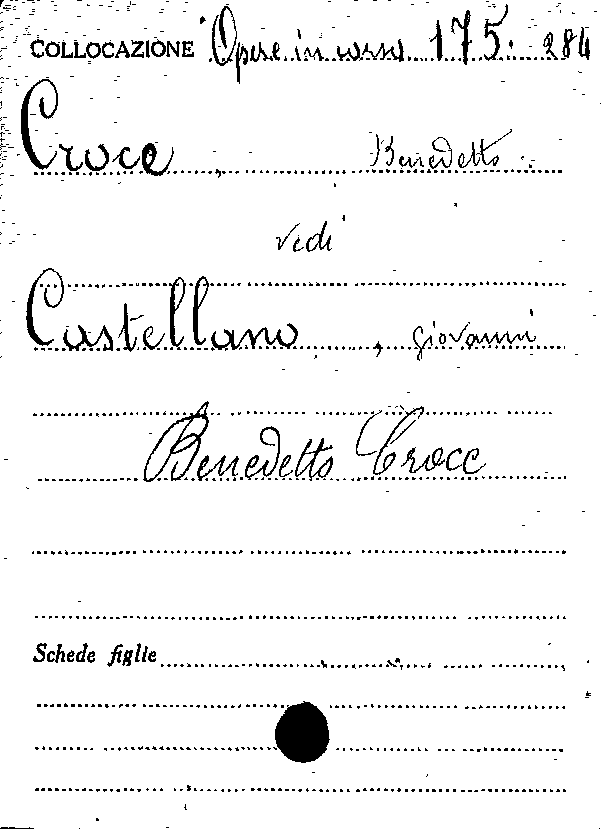 COLLOCAZIONE Opere in corso 175. 284
Croce, Benedetto.
vedi
Castellano, Giovanni
Benedetto Croce
Schede figlie